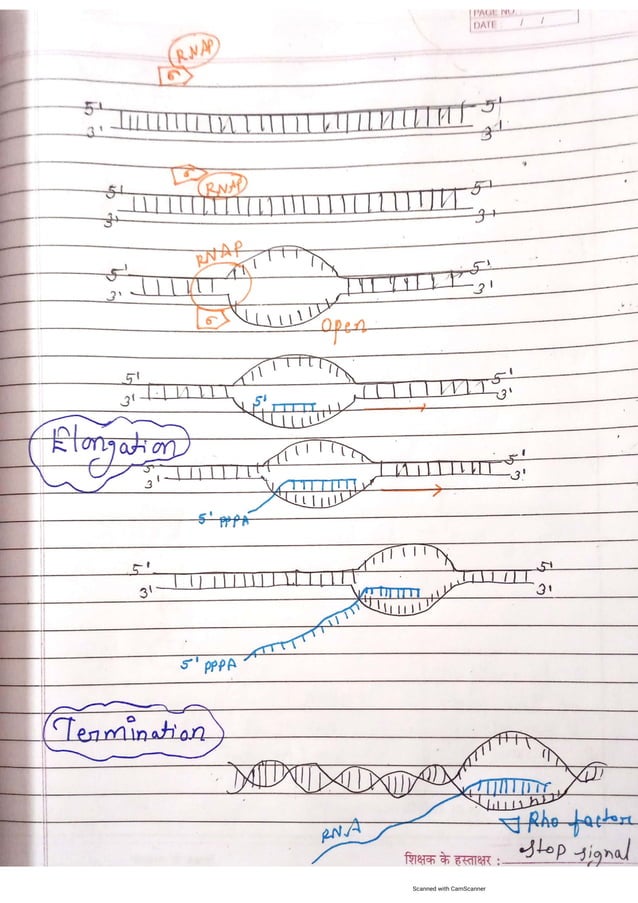 PAGE NO.
DATE / /
RNAP
σ
5' 5'
3' 3'
σ
RNAP
5' 5'
3' 3'
RNAP
5' 5'
3' 3'
σ
Open
5' 5'
3' 3'
5'
Elongation
5' 5'
3' 3'
5' PPPA
5' 5'
3' 3'
5' PPPA
Termination
RNA
Rho factor
शिक्षक के हस्ताक्षर :
Stop signal
Scanned with CamScanner